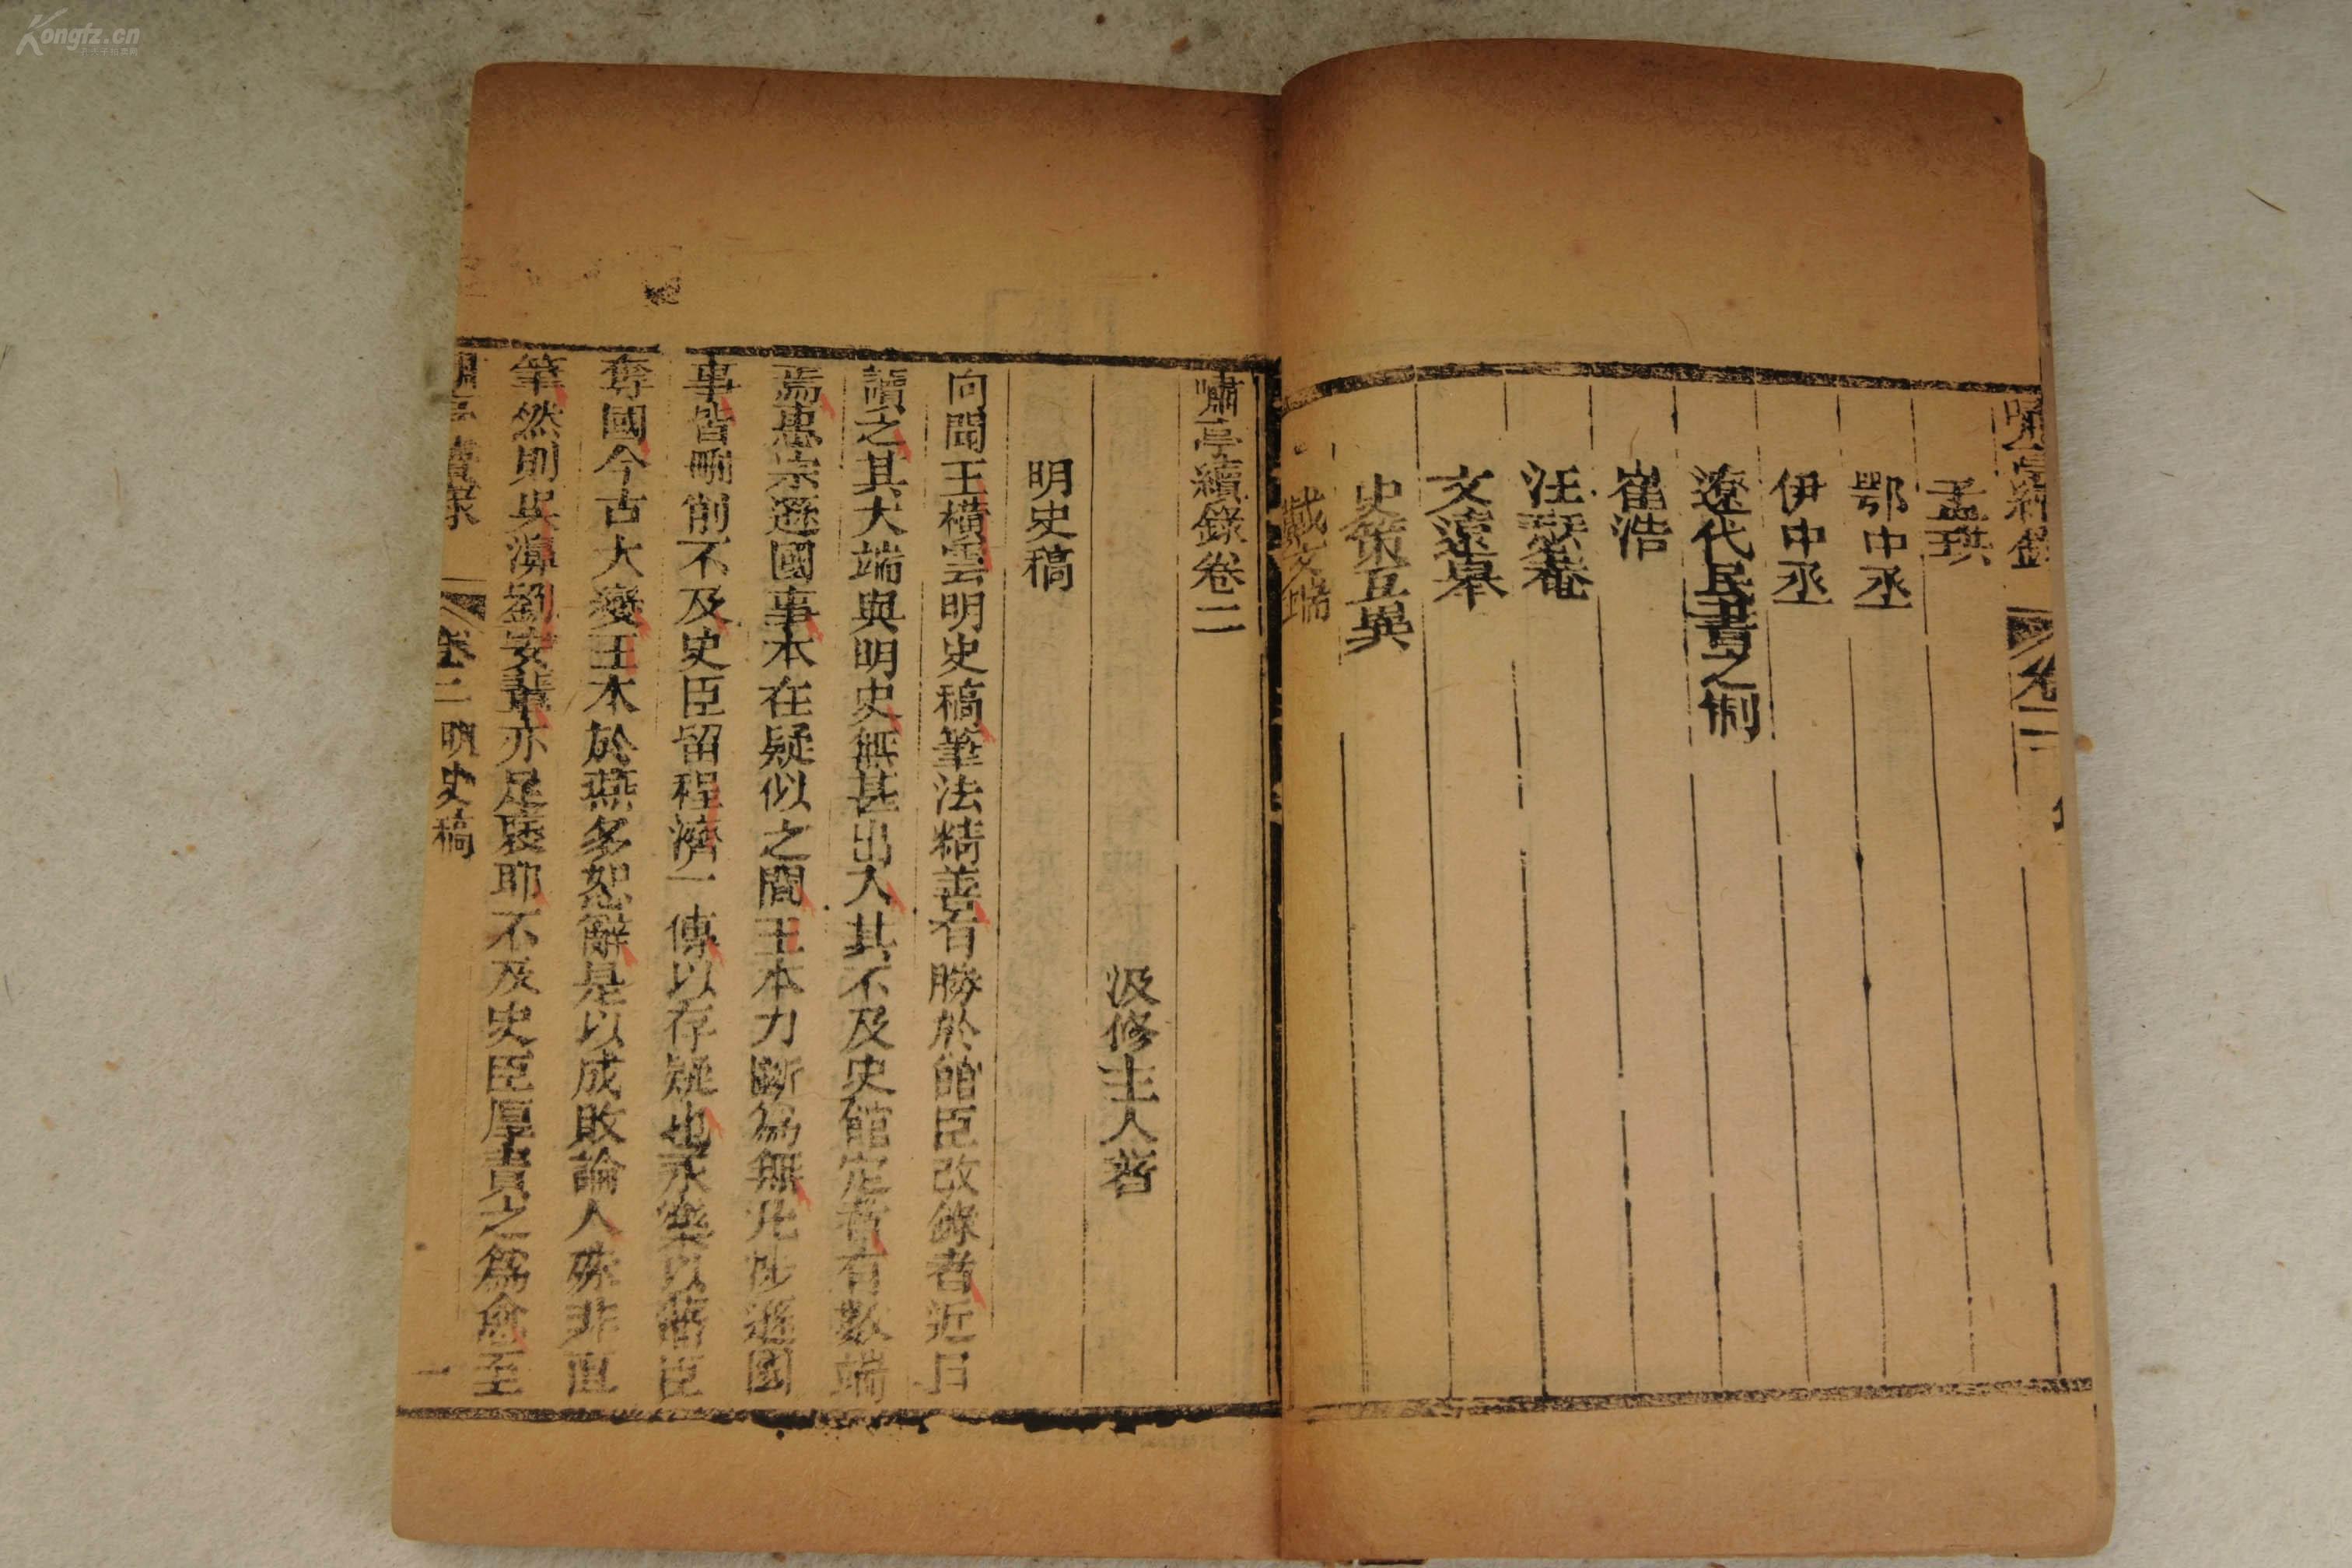 嘯亭續錄 卷二
孟珙
鄂中丞
伊中丞
遼代民書之制
崔浩
汪菴
文遠皋
史策互異
戴文端
嘯亭續錄卷二
汲修主人著
明史稿
向聞王橫雲明史稿筆法精善有勝於館臣改錄者近日
讀之其大端與明史無甚出入其不及史館定者有數端
焉惠宗遜國事本在疑似之間王本力斷爲無凡涉遜國
事皆刪削不及史臣留程濟一傳以存疑也永樂以藩臣
奪國今古大變王本於燕多恕辭是以成敗論人殊非直
筆然則吳濞劉安輩亦足襃耶不及史臣厚責之爲愈至
嘯亭續錄 卷二 明史稿 一
Kongfz.cn